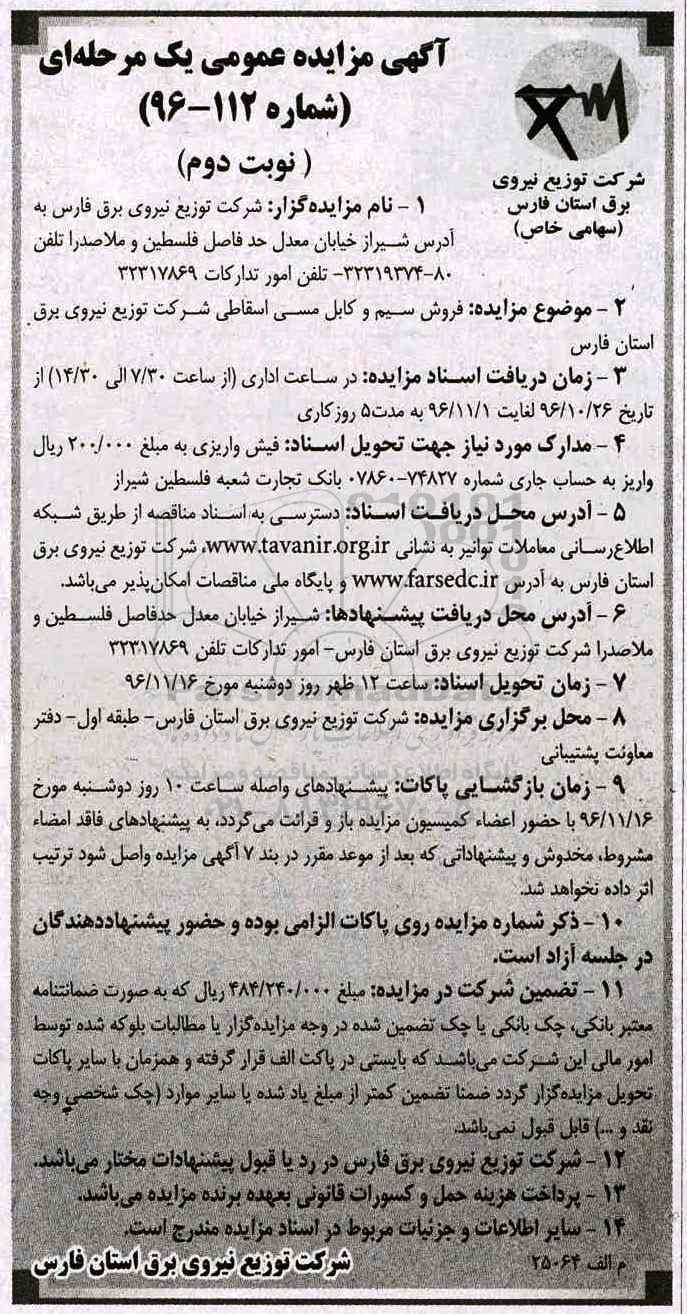 آگهی مزایده عمومی یک مرحله‌ای
(شماره ۱۱۲-۹۶)
(نوبت دوم)
شرکت توزیع نیروی
برق استان فارس
(سهامی خاص)
۱ - نام مزایده‌گزار: شرکت توزیع نیروی برق فارس به
آدرس شیراز خیابان معدل حد فاصل فلسطین و ملاصدرا تلفن
۸۰-۳۲۳۱۹۳۷۴- تلفن امور تدارکات ۳۲۳۱۷۸۶۹
۲ - موضوع مزایده: فروش سیم و کابل مسی اسقاطی شرکت توزیع نیروی برق
استان فارس
۳ - زمان دریافت اسناد مزایده: در ساعت اداری (از ساعت ۷/۳۰ الی ۱۴/۳۰) از
تاریخ ۹۶/۱۰/۲۶ لغایت ۹۶/۱۱/۱ به مدت ۵ روز کاری
۴ - مدارک مورد نیاز جهت تحویل اسناد: فیش واریزی به مبلغ ۲۰۰/۰۰۰ ریال
واریز به حساب جاری شماره ۷۴۸۲۷-۰۷۸۶۰ بانک تجارت شعبه فلسطین شیراز
۵ - آدرس محل دریافت اسناد: دسترسی به اسناد مناقصه از طریق شبکه
اطلاع‌رسانی معاملات توانیر به نشانی www.tavanir.org.ir، شرکت توزیع نیروی برق
استان فارس به آدرس www.farsedc.ir و پایگاه ملی مناقصات امکان‌پذیر می‌باشد.
۶ - آدرس محل دریافت پیشنهادها: شیراز خیابان معدل حدفاصل فلسطین و
ملاصدرا شرکت توزیع نیروی برق استان فارس- امور تدارکات تلفن ۳۲۳۱۷۸۶۹
۷ - زمان تحویل اسناد: ساعت ۱۲ ظهر روز دوشنبه مورخ ۹۶/۱۱/۱۶
۸ - محل برگزاری مزایده: شرکت توزیع نیروی برق استان فارس- طبقه اول- دفتر
معاونت پشتیبانی
۹ - زمان بازگشایی پاکات: پیشنهادهای واصله ساعت ۱۰ روز دوشنبه مورخ
۹۶/۱۱/۱۶ با حضور اعضاء کمیسیون مزایده باز و قرائت می‌گردد، به پیشنهادهای فاقد امضاء
مشروط، مخدوش و پیشنهاداتی که بعد از موعد مقرر در بند ۷ آگهی مزایده واصل شود ترتیب
اثر داده نخواهد شد.
۱۰ - ذکر شماره مزایده روی پاکات الزامی بوده و حضور پیشنهاددهندگان
در جلسه آزاد است.
۱۱ - تضمین شرکت در مزایده: مبلغ ۴۸۴/۲۴۰/۰۰۰ ریال که به صورت ضمانتنامه
معتبر بانکی، چک بانکی یا چک تضمین شده در وجه مزایده‌گزار یا مطالبات بلوکه شده توسط
امور مالی این شرکت می‌باشد که بایستی در پاکت الف قرار گرفته و همزمان با سایر پاکات
تحویل مزایده‌گزار گردد ضمنا تضمین کمتر از مبلغ یاد شده یا سایر موارد (چک شخصی وجه
نقد و ...) قابل قبول نمی‌باشد.
۱۲ - شرکت توزیع نیروی برق فارس در رد یا قبول پیشنهادات مختار می‌باشد.
۱۳ - پرداخت هزینه حمل و کسورات قانونی بعهده برنده مزایده می‌باشد.
۱۴ - سایر اطلاعات و جزئیات مربوط در اسناد مزایده مندرج است.
م الف ۲۵۰۶۴
شرکت توزیع نیروی برق استان فارس